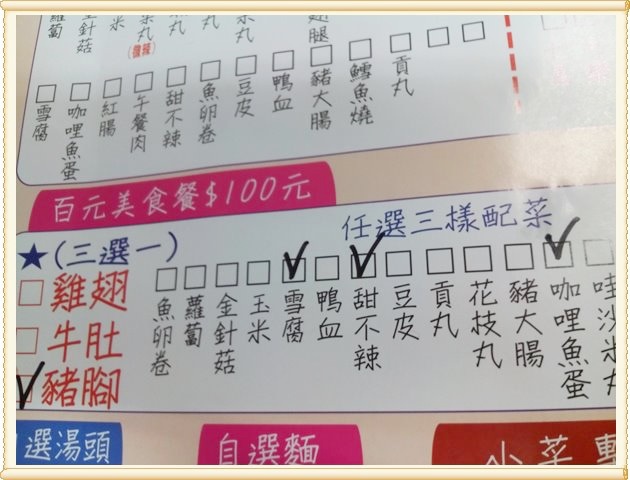 蘿蔔
金針菇
玉米
丸
(微辣)
丸
丸
翅腿
雪腐
咖哩魚蛋
紅腸
午餐肉
甜不辣
魚卵卷
豆皮
鴨血
豬大腸
鱈魚燒
貢丸
百元美食餐$100元
★(三選一)
任選三樣配菜
雞翅
牛肚
豬腳
魚卵卷
蘿蔔
金針菇
玉米
雪腐
鴨血
甜不辣
豆皮
貢丸
花枝丸
豬大腸
咖哩魚蛋
哇沙米丸
選湯頭
自選麵
小菜